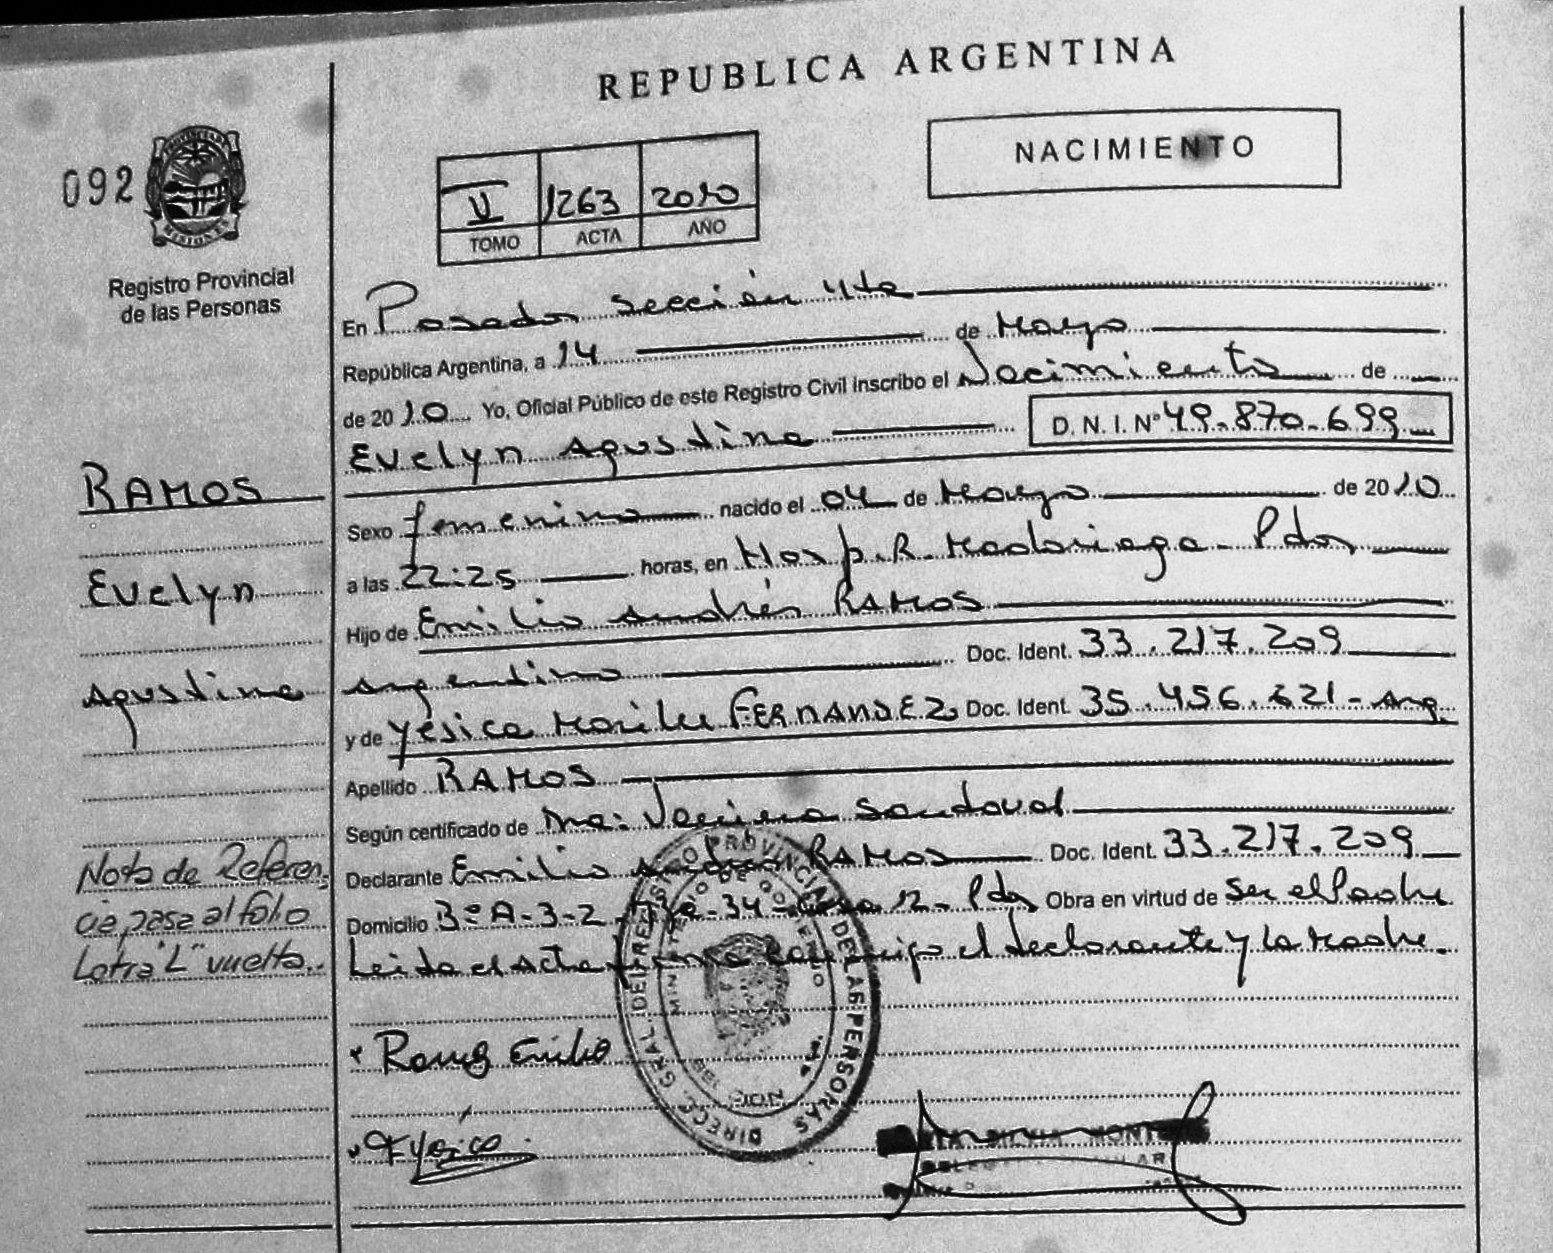 REPUBLICA ARGENTINA
NACIMIENTO
092
PROVINCIA
MISIONES
Registro Provincial
de las Personas
V 1263 2010
TOMO ACTA AÑO
En Posadas sección 4ta
República Argentina, a 14 de Mayo
de 2010 Yo, Oficial Público de este Registro Civil inscribo el Nacimiento de
Evelyn Agustina D. N. I. Nº 49.870.699
RAMOS
Sexo femenino nacido el 04 de Mayo de 2010
a las 22:25 horas, en Hosp. R. Madariaga - Pdas
Evelyn
Hijo de Emilio Andrés RAMOS
Agustina
Argentino Doc. Ident. 33.217.209
y de Yesica Marilu FERNANDEZ Doc. Ident. 35.456.621 - Arg.
Apellido RAMOS
Según certificado de Dra: Sandoval
Declarante Emilio Andrés RAMOS Doc. Ident. 33.217.209
Domicilio 3º A-3-2 - 34 - 12 - Pdas Obra en virtud de Ser el Padre
Leida el Acta firma conmigo el declarante y la Madre.
Nota de Referen
cia pasa al folio
Letra "L" vuelta
Ramos Emilio
DIRECC. GRAL. DEL REGISTRO PROVINCIAL DE LAS PERSONAS
MINISTERIO DE GOBIERNO
SILVIA